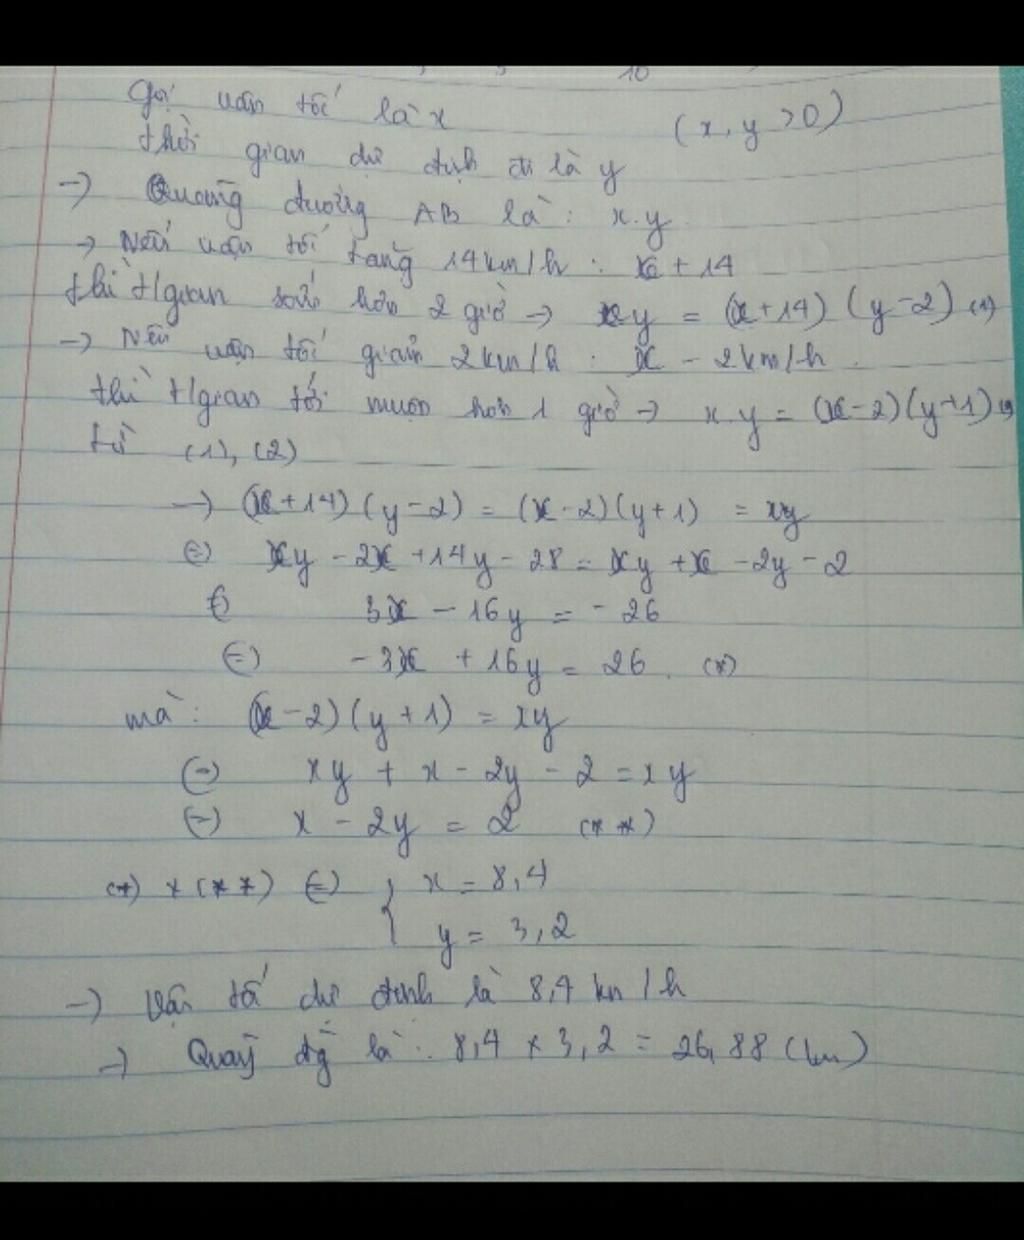 10
Gọi vận tốc là x (x, y >0)
thời gian dự định đi là y
→ Quãng đường AB là : x.y
→ Nếu vận tốc tăng 14km/h : x + 14
thì t/gian sớm hơn 2 giờ → xy = (x+14) (y-2) (1)
→ Nếu vận tốc giảm 2km/h : x - 2km/h.
thì t/gian tới muộn hơn 1 giờ → x.y = (x-2)(y+1) (2)
từ (1), (2)
→ (x+14)(y-2) = (x-2)(y+1) = xy
(=) xy - 2x + 14y - 28 = xy + x - 2y - 2
(=) 3x - 16y = - 26
(=) - 3x + 16y = 26. (*)
mà : (x-2)(y+1) = xy
(=) xy + x - 2y - 2 = xy
(=) x - 2y = 2 (* *)
(*) x (* *) (=) { x = 8,4
y = 3,2
→ Vận tốc dự định là 8,4 km/h
→ Quãng đg là : 8,4 x 3,2 = 26,88 (km)